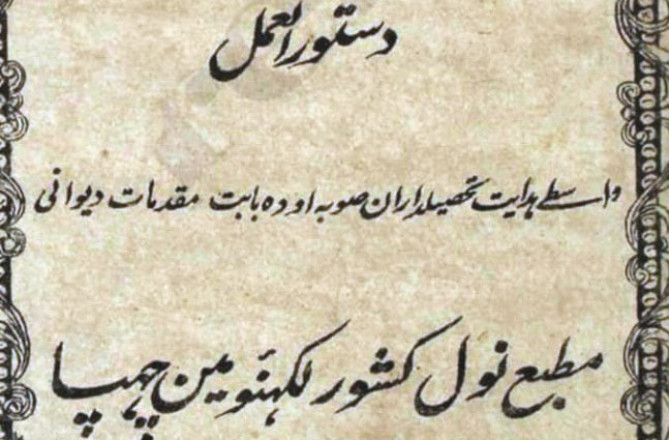 دستورالعمل
واسطے ہدایت تحصیلداران صوبہ اودہ بابت مقدمات دیوانی
مطبع نول کشور لکہنؤ مین چہپا